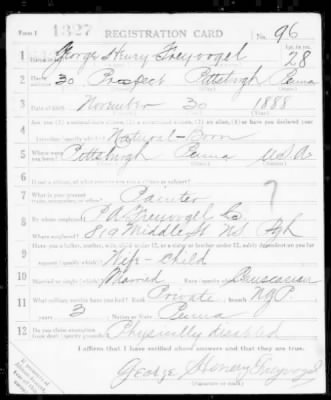 Form 1 1327 REGISTRATION CARD No. 96
1 George Henry Freyvogel 28
2 30 Prospect Pittsburgh Penna
3 Date of birth November 30 1888
4 Are you a natural-born citizen, a naturalized citizen, an alien, or have you declared your intention (specify which)? Natural-Born
5 Where were you born? Pittsburgh Penna U.S.A.
6 If not a citizen, of what country are you a citizen or subject?
7 What is your present trade, occupation, or office? Painter
8 By whom employed? Freyvogel Co
819 Middle St NS Pgh
9 Have you a father, mother, wife, child under 12, or a sister or brother under 12, solely dependent on you for support (specify which)? Wife - child
10 Married or single (which)? Married Race (specify which)? Caucasian
11 What military service have you had? Rank Private branch NGP
years 3 Nation or State Penna
12 Do you claim exemption from draft (specify grounds)? Physically disabled
I affirm that I have verified above answers and that they are true.
George Henry Freyvogel
(Signature or mark)